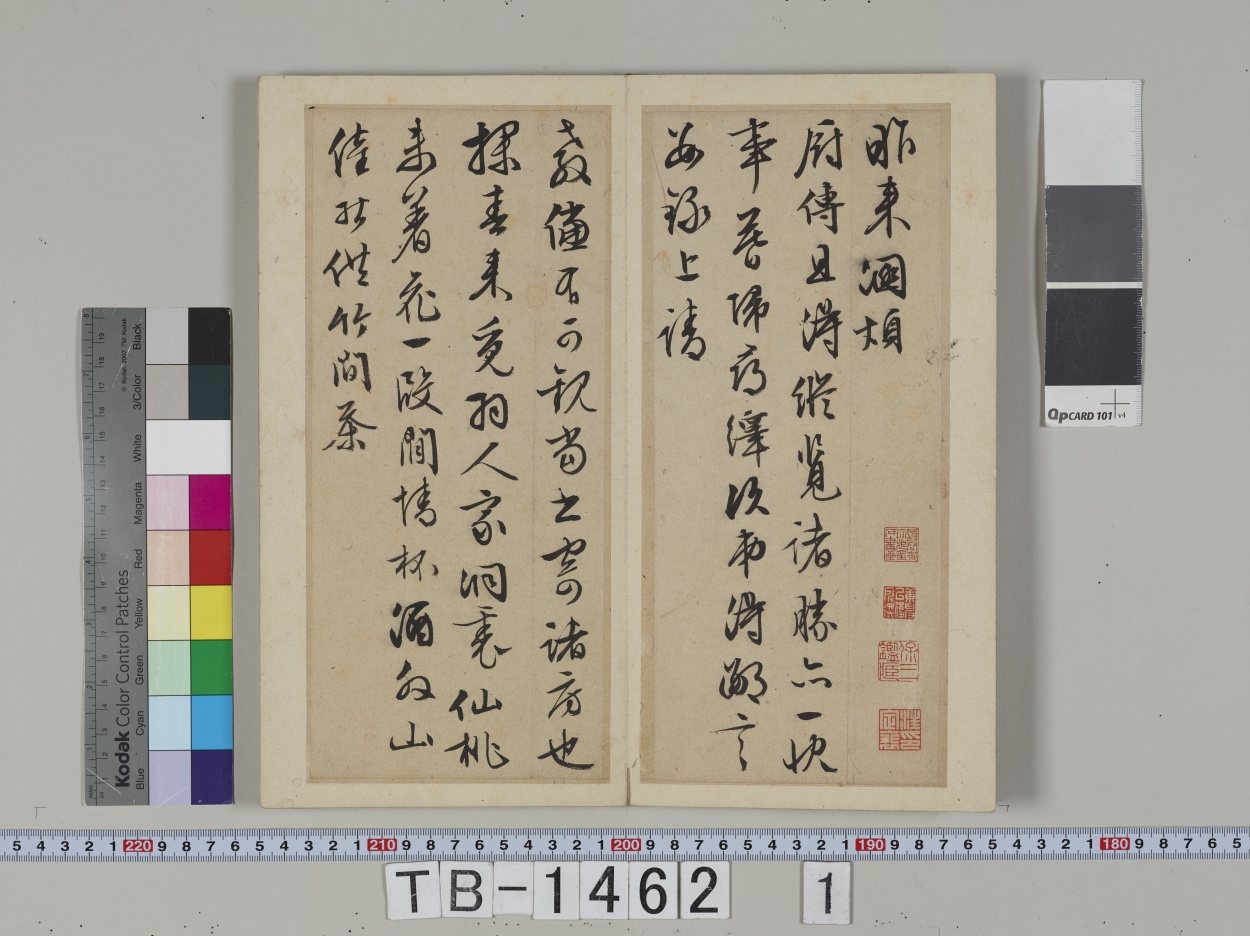 昨来溷煩
厨傳且得縦覧諸勝亦一快
事暮帰而繹次弟得鄙言
錄上請
教儻有可観當書寄諸房也
探春来覓羽人家洞裏仙桃
未着花一段閒情杯酒外山
僮能供竹間茶
Kodak Color Control Patches
Blue Cyan Green Yellow Red Magenta White 3/Color Black
© Kodak 2007. TM: Kodak
QPCARD 101 v4
5 4 3 2 1 220 9 8 7 6 5 4 3 2 1 210 9 8 7 6 5 4 3 2 1 200 9 8 7 6 5 4 3 2 1 190 9 8 7 6 5 4 3 2 1 180 9 8 7 6 5
TB-1462 1